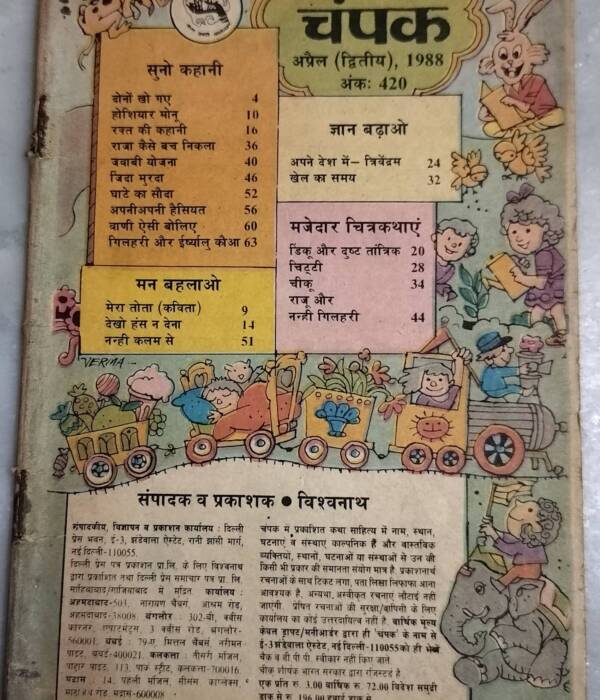 चंपक
अप्रैल (द्वितीय), 1988
अंक: 420
सुनो कहानी
दोनों खो गए 4
होशियार मोनू 10
रक्त की कहानी 16
राजा कैसे बच निकला 36
जवाबी योजना 40
जिंदा मुरदा 46
घाटे का सौदा 52
अपनीअपनी हैसियत 56
वाणी ऐसी बोलिए 60
गिलहरी और ईर्ष्यालु कौआ 63
ज्ञान बढ़ाओ
अपने देश में– त्रिवेंद्रम 24
खेल का समय 32
मजेदार चित्रकथाएं
डिंकू और दुष्ट तांत्रिक 20
चिट्टी 28
चीकू 34
राजू और
नन्ही गिलहरी 44
मन बहलाओ
मेरा तोता (कविता) 9
देखो हंस न देना 14
नन्ही कलम से 51
VERMA
संपादक व प्रकाशक ● विश्वनाथ
संपादकीय, विज्ञापन व प्रकाशन कार्यालय : दिल्ली
प्रेस भवन, ई-3, झंडेवाला ऐस्टेट, रानी झांसी मार्ग,
नई दिल्ली-110055.
दिल्ली प्रेस पत्र प्रकाशन प्रा.लि. के लिए विश्वनाथ
द्वारा प्रकाशित तथा दिल्ली प्रेस समाचार पत्र प्रा. लि.
साहिबाबाद/गाजियाबाद में मुद्रित. कार्यालय :
अहमदाबाद-503, नारायण चैंबर्स, आश्रम रोड,
अहमदाबाद-38009. बंगलौर : 302-बी, क्वींस
कारनर, अपार्टमेंट्स, 3 क्वींस रोड, बंगलौर-
560001. बंबई : 79-ए, मित्तल चैंबर्स, नरीमन
पाइंट, बंबई-400021. कलकत्ता : तीसरी मंजिल,
पोद्दार पाइंट, 113, पार्क स्ट्रीट, कलकत्ता-700016.
मद्रास : 14, पहली मंजिल, सीसंस कांप्लेक्स,
रोड, मद्रास-600008
चंपक में प्रकाशित कथा साहित्य में नाम, स्थान,
घटनाएं व संस्थाएं काल्पनिक हैं और वास्तविक
व्यक्तियों, स्थानों, घटनाओं या संस्थाओं से उन की
किसी भी प्रकार की समानता संयोग मात्र है. प्रकाशनार्थ
रचनाओं के साथ टिकट लगा, पता लिखा लिफाफा आना
आवश्यक है, अन्यथा, अस्वीकृत रचनाएं लौटाई नहीं
जाएंगी. प्रेषित रचनाओं की सुरक्षा/वापिसी के लिए
कार्यालय का कोई उत्तरदायित्व नहीं है. वार्षिक मूल्य
केवल ड्राफ्ट/मनीआर्डर द्वारा ही 'चंपक' के नाम से
ई-3 झंडेवाला ऐस्टेट, नई दिल्ली-110055 को ही भेजें
चैक व वी पी पी. स्वीकार नहीं किए जाते
चंपक शीर्षक भारत सरकार द्वारा रजिस्टर्ड है
एक प्रति रु. 3.00 वार्षिक रु. 72.00 विदेश समुद्री
डाक से रु. 196.00